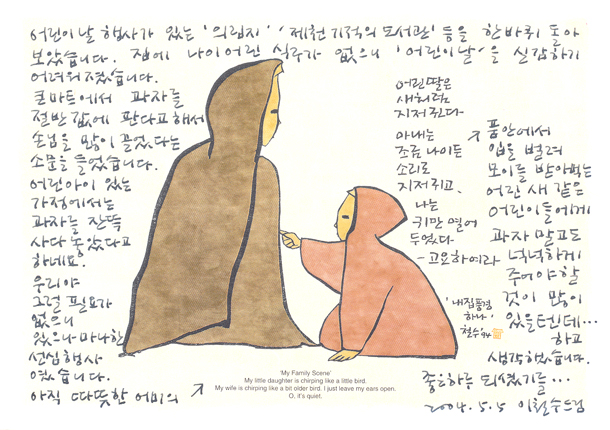 어린이날 행사가 있는 '의림지' '제천 기적의 도서관' 등을 한바퀴 돌아
보았습니다. 집에 나이어린 식구가 없으니 '어린이날'을 실감하기
어려워졌습니다.
큰마트에서 과자를
절반값에 판다고 해서
손님을 많이 끌었다는
소문을 들었습니다.
어린아이 있는
가정에서는
과자를 잔뜩
사다 놓았다고
하네요.
우리야
그럴 필요가
없으니
있으나마나한
선심행사
였습니다.
아직 따뜻한 어미의
품안에서
입을 벌려
모이를 받아먹는
어린 새 같은
어린이들에게
과자 말고도
넉넉하게
주어야 할
것이 많이
있을텐데...
하고
생각했습니다.
좋은하루 되셨기를...
2004. 5. 5 이철수드림
어린 딸은
새처럼
지저귄다
아내는
조금 나이든
소리로
지저귀고,
나는
귀만 열어
두었다
- 고요하여라
'내 집 풍경
하나'
철수 '94
'My Family Scene'
My little daughter is chirping like a little bird.
My wife is chirping like a bit older bird. I just leave my ears open.
O, it's quiet.